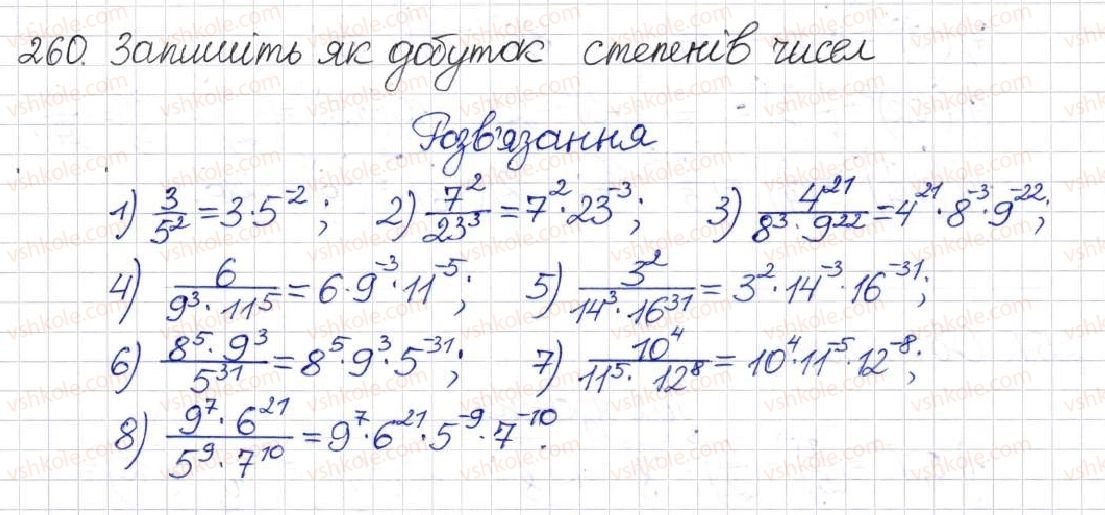 260. Запишіть як добуток степенів чисел
Розв'язання
1) 3/5² = 3·5⁻²; 2) 7²/23³ = 7²·23⁻³; 3) 4²¹/(8³·9²²) = 4²¹·8⁻³·9⁻²²;
4) 6/(9³·11⁵) = 6·9⁻³·11⁻⁵; 5) 3²/(14³·16³¹) = 3²·14⁻³·16⁻³¹;
6) (8⁵·9³)/5³¹ = 8⁵·9³·5⁻³¹; 7) 10⁴/(11⁵·12⁸) = 10⁴·11⁻⁵·12⁻⁸;
8) (9⁷·6²¹)/(5⁹·7¹⁰) = 9⁷·6²¹·5⁻⁹·7⁻¹⁰.